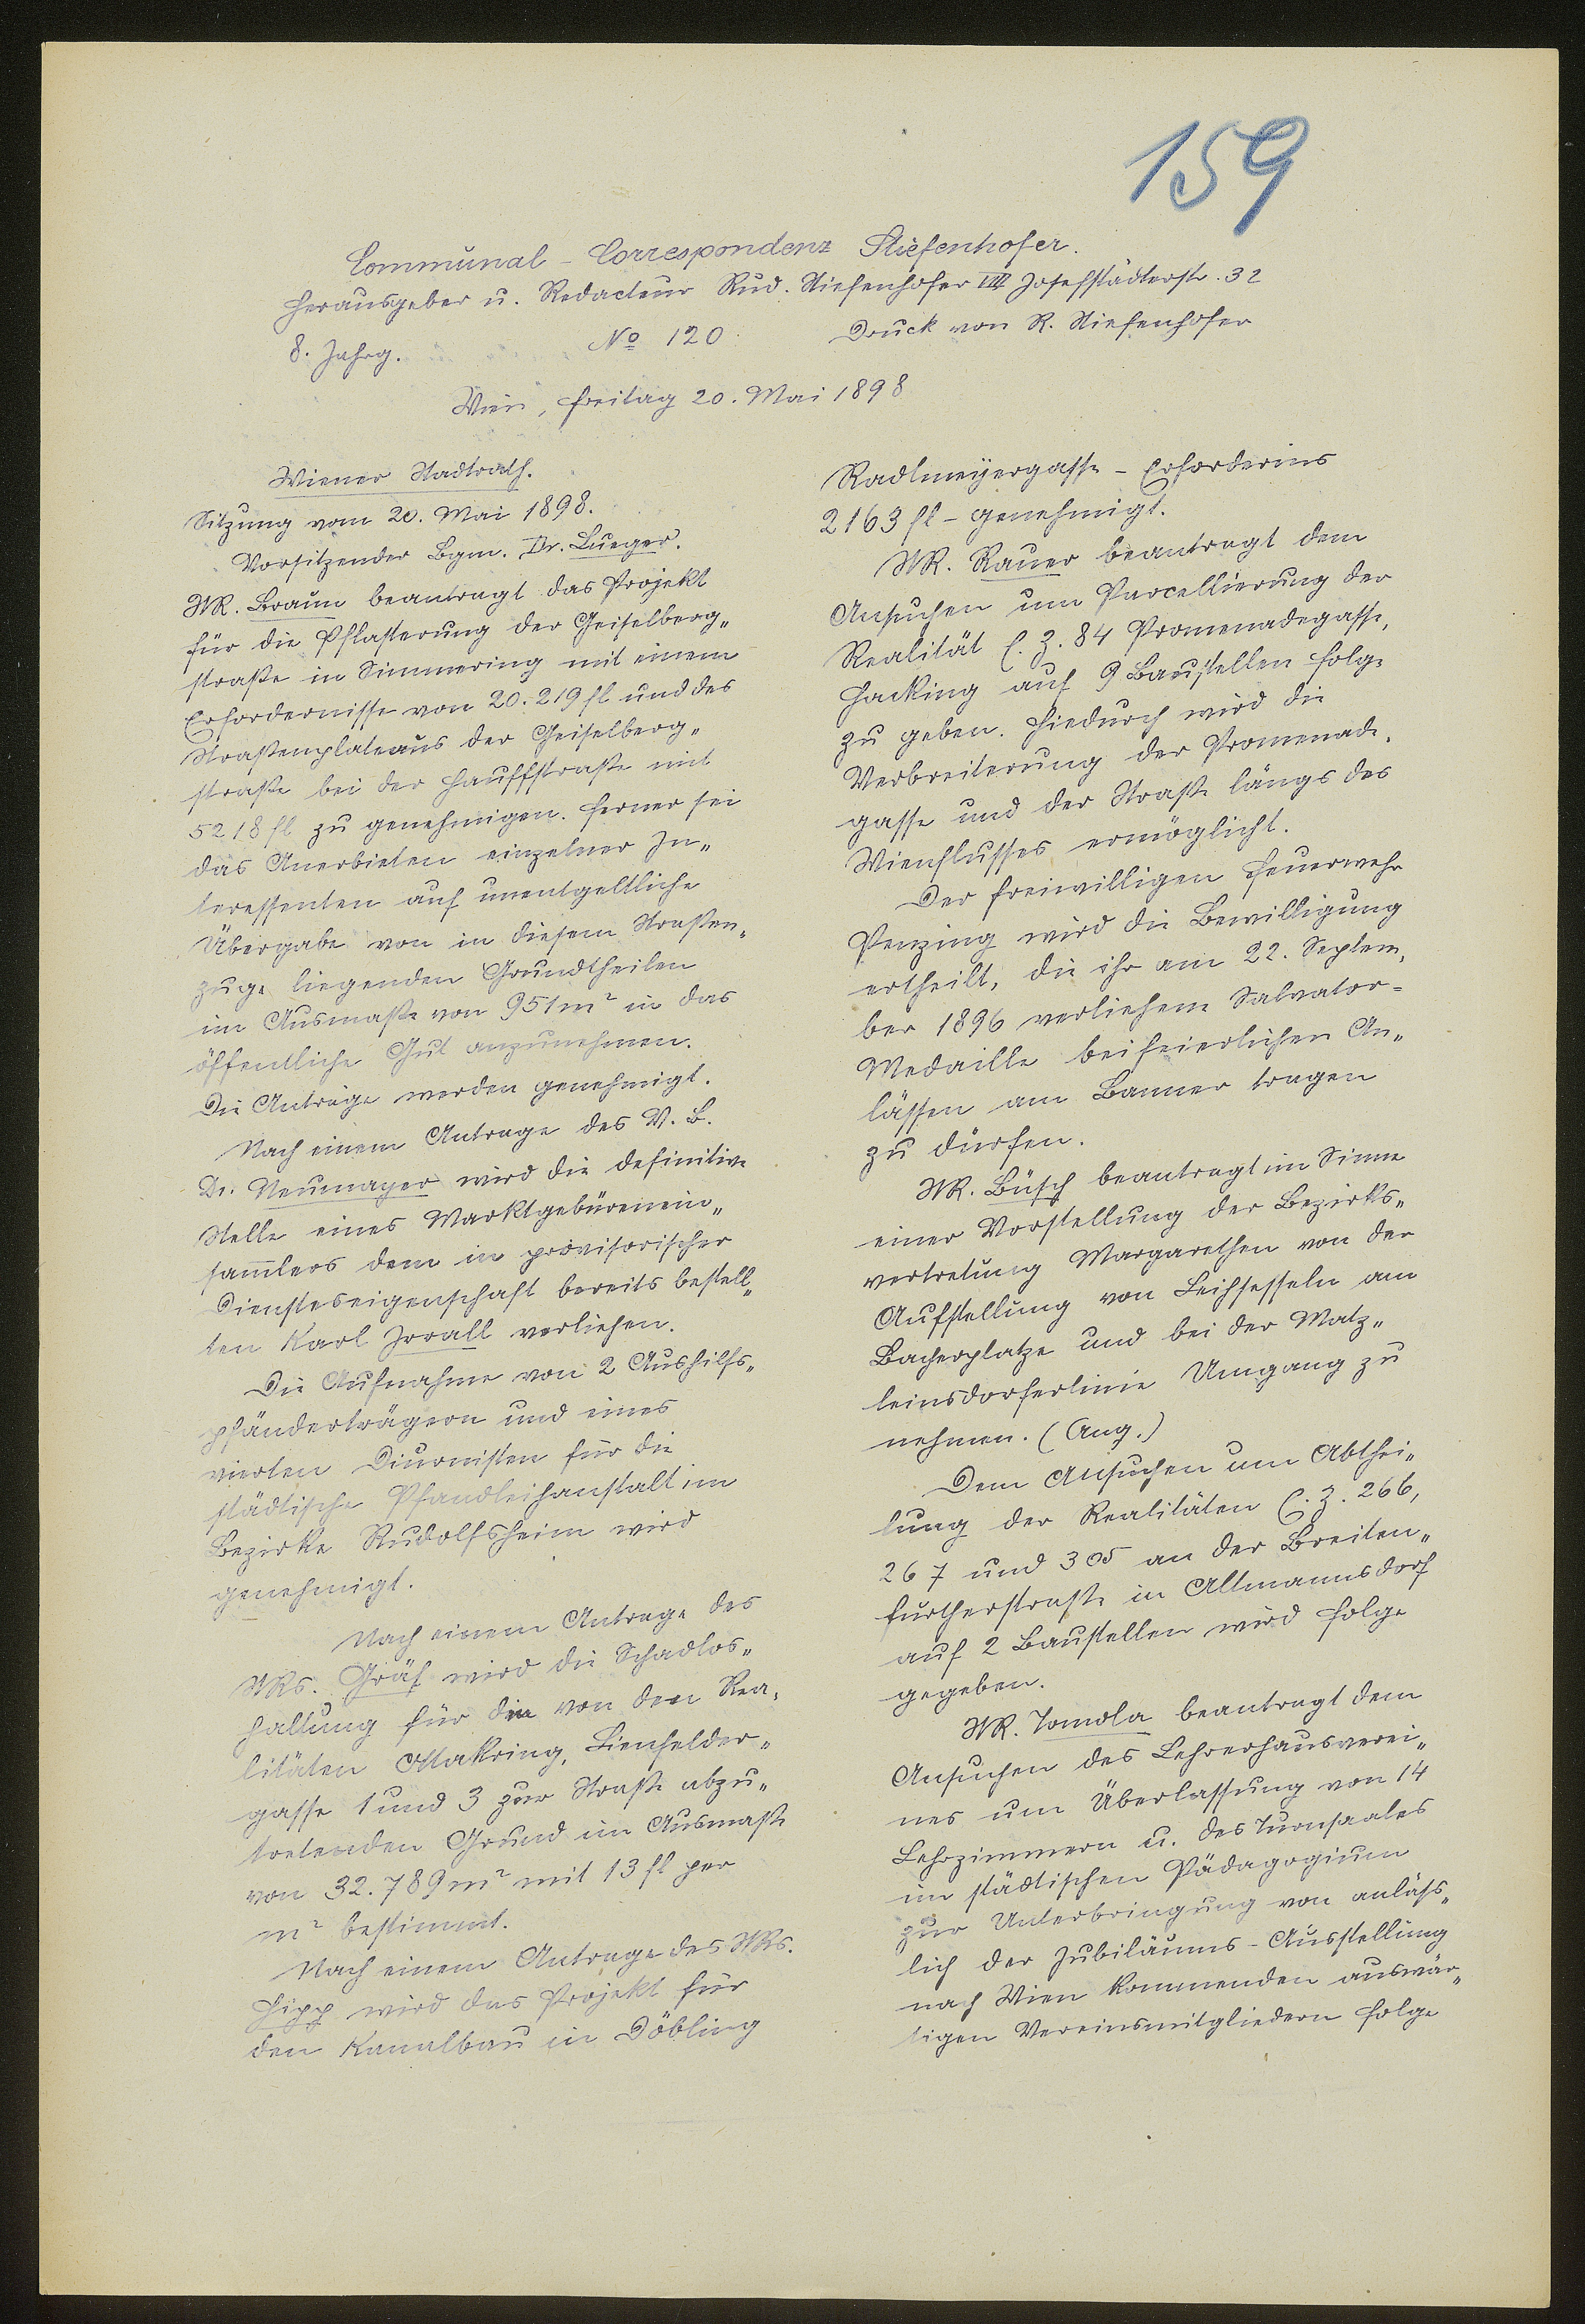 159
Communal-Correspondenz Stiefenhofer.
Herausgeber u. Redacteur Rud. Stiefenhofer VIII Josefstädterstr. 32
8. Jahrg. No 120 Druck von R. Stiefenhofer
Wien, Freitag 20. Mai 1898
Wiener Stadtrath.
Sitzung vom 20. Mai 1898.
Vorsitzender Bgm. Dr. Lueger.
StR. Braun beantragt das Projekt
für die Pflasterung der Geiselberg„
straße in Simmering mit einem
Erfordernisse von 20.219 fl und des
Straßenplateaus der Geiselberg„
straße bei der Hauffstraße mit
5218 fl zu genehmigen. Ferner sei
das Anerbieten einzelner In„
teressenten auf unentgeltliche
Übergabe von in diesem Straßen„
zuge liegenden Grundtheilen
im Ausmaße von 951 m² in das
öffentliche Gut anzunehmen.
Die Anträge werden genehmigt.
Nach einem Antrage des V. B.
Dr. Neumayer wird die definitive
Stelle eines Marktgebürenein„
sam̄lers dem in provisorischer
Diensteseigenschaft bereits bestell„
ten Karl Jrrall verliehen.
Die Aufnahme von 2 Aushilfs„
pfänderträgern und eines
vierten Diurnisten für die
städtische Pfandleihanstalt im
Bezirke Rudolfsheim wird
genehmigt.
Nach einem Antrage des
StRs. Gräf wird die Schadlos„
haltung für die von den Rea„
litäten Ottakring, Lienfelder„
gasse 1 und 3 zur Straße abzu„
tretenden Grund im Ausmaße
von 32.789 m² mit 13 fl per
m² bestimmt.
Nach einem Antrage des StRs.
Hipp wird das Projekt für
den Kanalbau in Döbling
Radlmeyergasse - Erforderins
2163 fl - genehmigt.
StR. Rauer beantragt dem
Ansuchen um Parcellierung der
Realität C. Z. 84 Promenadegasse,
Hacking auf 9 Baustellen Folge
zu geben. Hiedurch wird die
Verbreiterung der Promenade„
gasse und der Straße längs des
Wienflusses ermöglicht.
Der freiwilligen Feuerwehr
Penzing wird die Bewilligung
ertheilt, die ihr am 22. Septem„
ber 1896 verliehene Salvator-
Medaille bei feierlichen An„
lässen am Banner tragen
zu dürfen.
StR. Büsch beantragt im Sinne
einer Vorstellung der Bezirks„
vertretung Margarethen von der
Aufstellung von Leihsesseln am
Bacherplatze und bei der Matz„
leinsdorferlinie Umgang zu
nehmen. (Ang.)
Dem Ansuchen um Abthei„
lung der Realitäten C. Z. 266,
267 und 305 an der Breiten„
furtherstraße in Altmannsdorf
auf 2 Baustellen wird Folge
gegeben.
StR. Tomola beantragt dem
Ansuchen des Lehrerhausverei„
nes um Überlassung von 14
Lehrzimmern u. des Turnsaales
im städtischen Pädagogium
zur Unterbringung von anläss„
lich der Jubiläums-Ausstellung
nach Wien kommenden auswär„
tigen Vereinsmitgliedern Folge